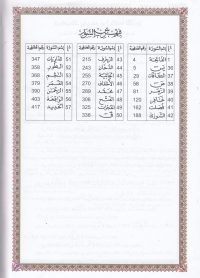 اسم السورة رقم الصفحة اسم السورة رقم الصفحة اسم السورة رقم الصفحة
1 الفاتحة 4 43 الزخرف 215 51 الذاريات 347
36 يس 5 44 الدخان 52 الطور 358
37 الصافات 29 45 الجاثية 53 النجم 368
38 ص 56 46 الأحقاف 54 القمر 379
39 الزمر 81 47 محمد 289 55 الرحمن 390
40 غافر 120 48 الفتح 56 الواقعة 403
41 فصلت 49 الحجرات 325 57 الحديد 417
42 الشورى 188 50 ق 336